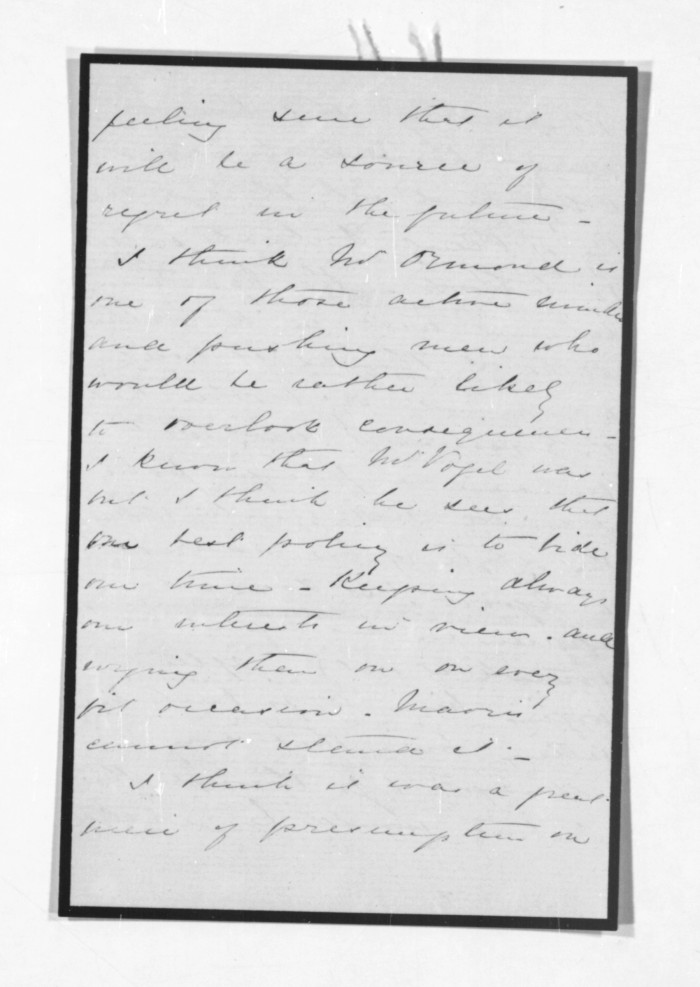 feeling sure that it
will be a source of
regret in the future -
I think Mr Ormond is
one of those active minded
and pushing men who
would be rather likely
to overlook consequences -
I know that Mr Vogel was
but I think he sees that
our best policy is to bide
our time - Keeping always
our interests in view. and
urging them on on every
fit occasion. Maoris
cannot stand it -
I think it was a great
piece of presumption on